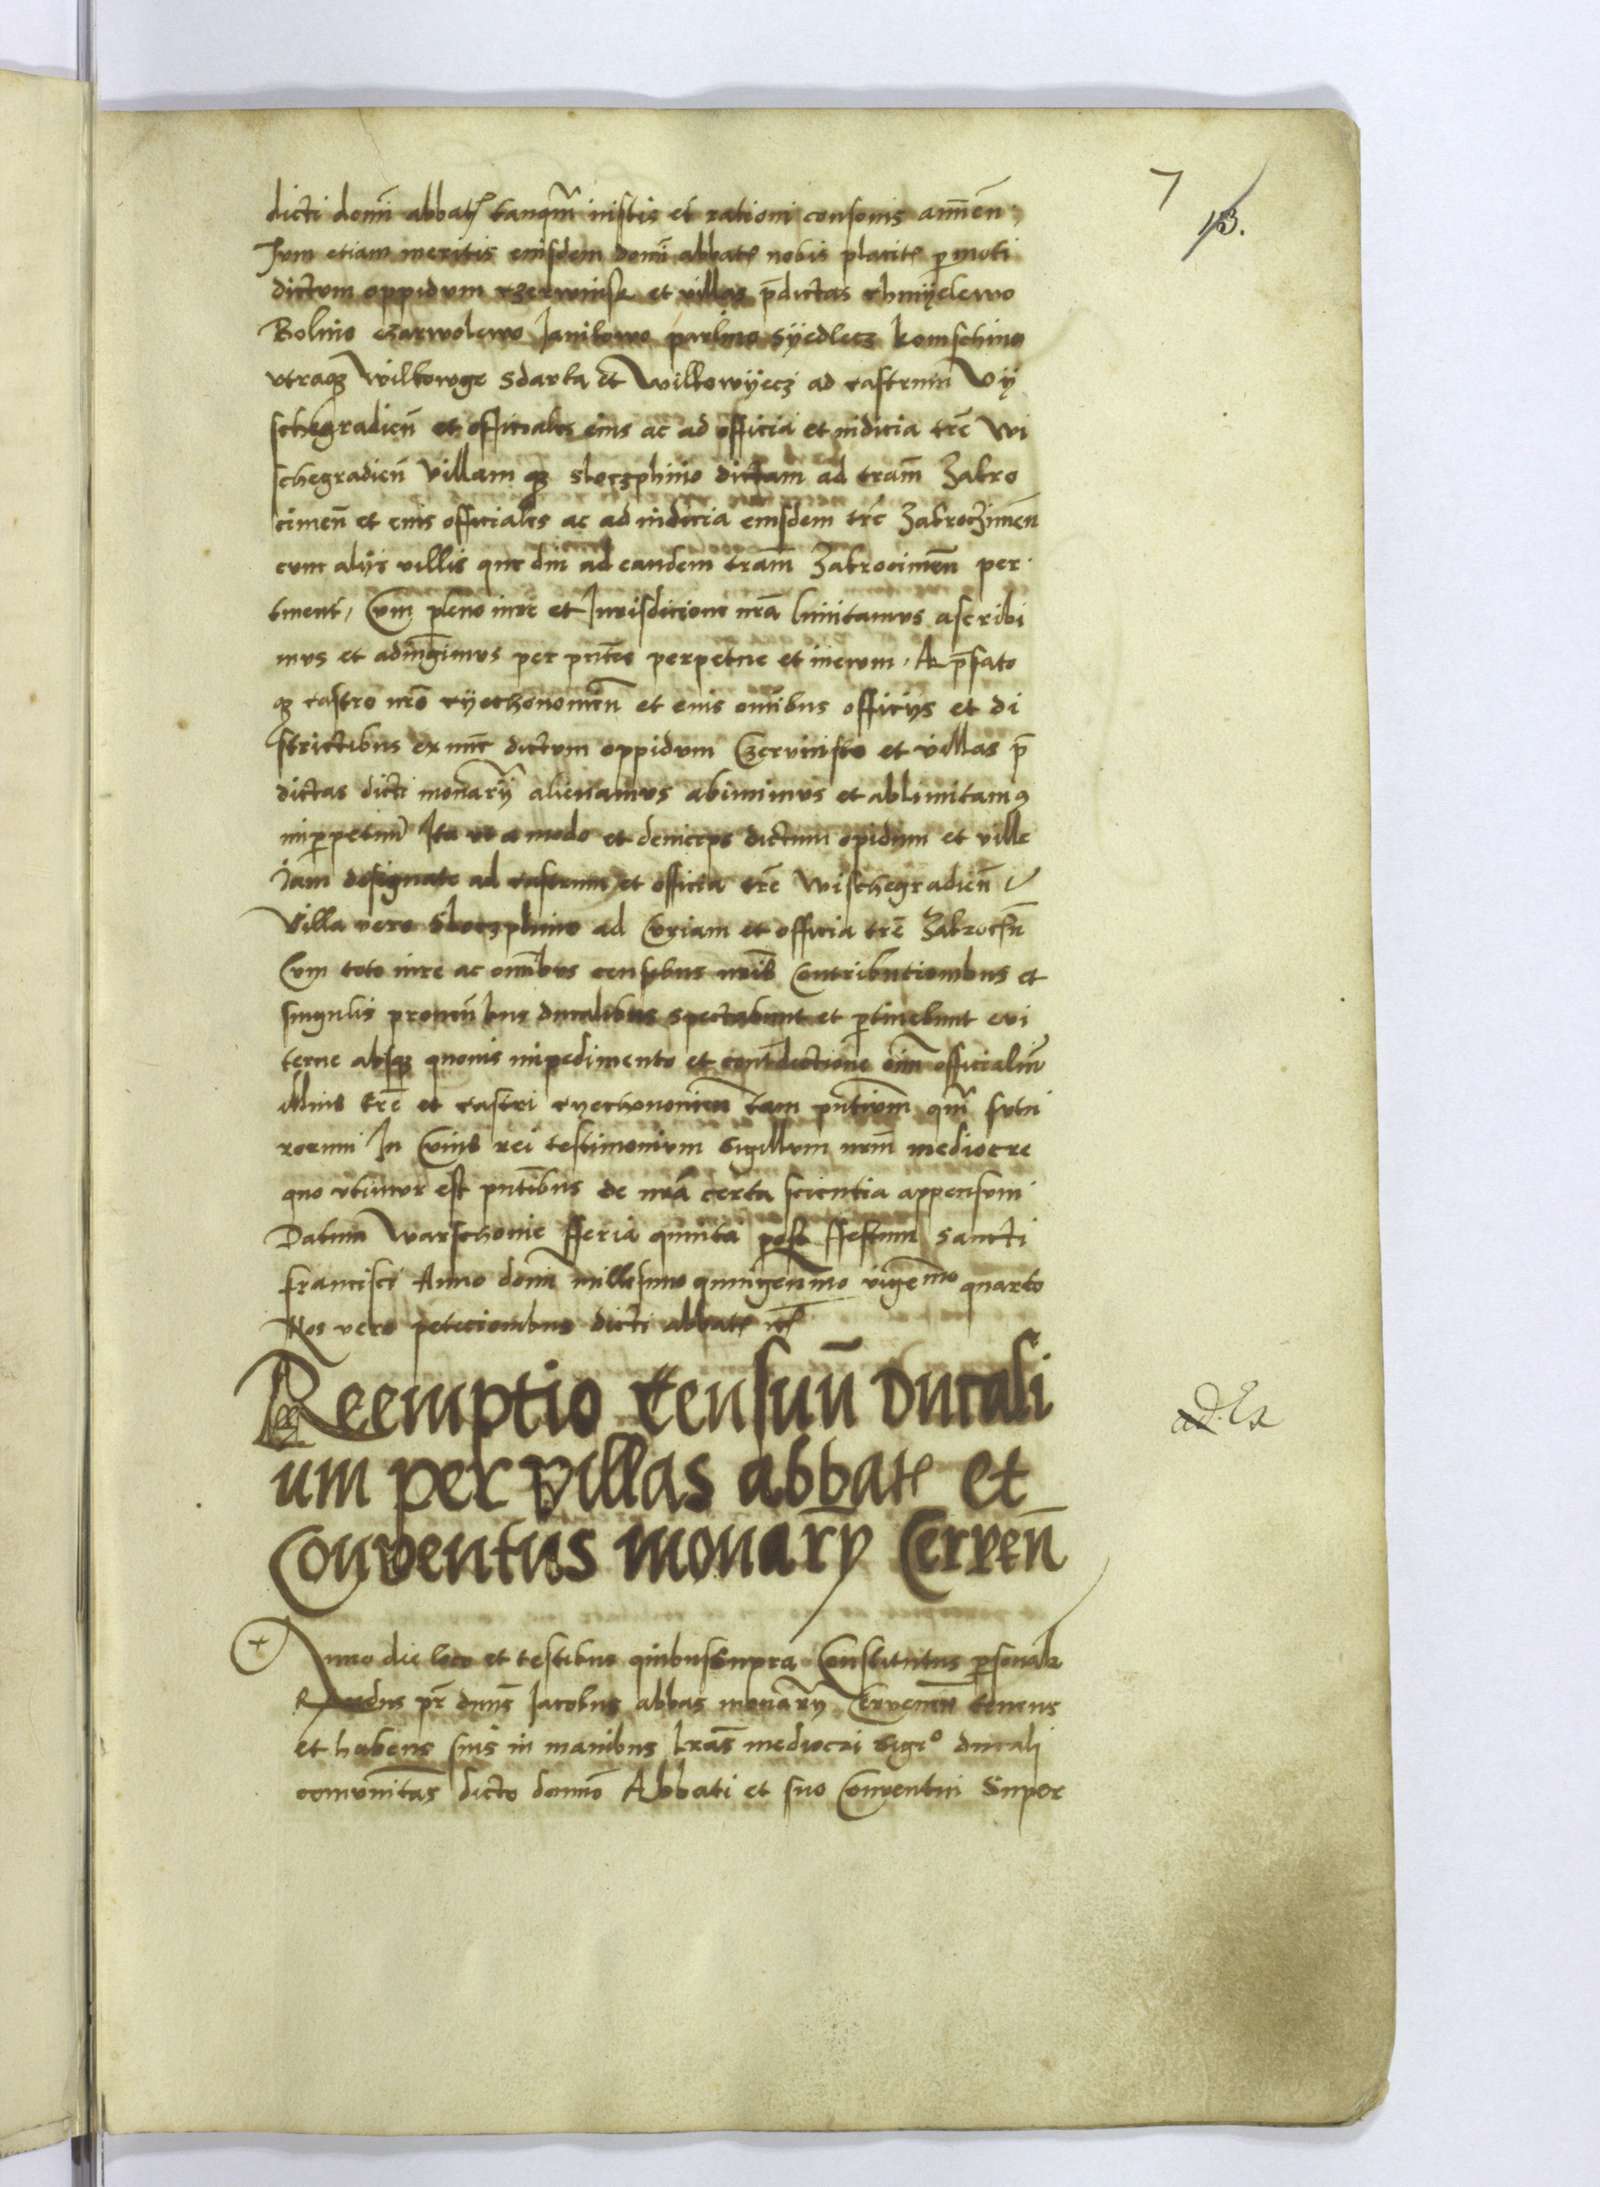 7
13.
dicti domi abbatis tanqm iustis et rationi consonis annuen
Tum etiam meritis eiusdem domi abbatis nobis placitis permoti
dictum oppidum czerwinsk et villas pdictas chmyelewo
Bolino czarwolewo Janikowo parlino Syedlecz komschino
vtraqz Wilkowge Sdarka et Wilkowyecz ad castrum Vy
schegradien et officiales eius ac ad officia et iudicia tre Wi
schegradien Villam qz sloczphino dictam ad tram Zakro
cimen et eius officiales ac ad iudicia eiusdem tre Zakroczimen
cum alijs villis que diu ad eandem tram Zakrocimen per
tinent, Cum pleno iure et Jurisdicione nra limitamus ascribi
mus et adiungimus per pntes perpetue et in euum, A pfato
qz castro nro cyechonomen et eius omibus officijs et di
strictibus ex nunc dictum oppidum Czerwinsko et villas p
dictas dicti monary alienamus abimimus et ablimitamus
inperpetuum Ita vt a modo et deinceps dictum opidum et ville
Jam designate ad castrum et officia tre Wischegradien
Villa vero Sloczphino ad Curiam et officia tre Zakrocin
Cum toto iure ac omibus censibus nris Contributionibus et
singulis prouentibus ducalibus spectabunt et ptinebunt eui
terne absqz quouis impedimento et contdictione oim officialiu
illius tre et castri cyechonomien tam pntium qm futu
rorum In Cuius rei testimonium Sigillum nrm mediocre
quo vtimur est pntibus de nra certa scientia appensum
Datum Warschouie fferia quinta post ffestum Sancti
francisci Anno domi millesimo quingenmo vigemo quarto
Nos vero peticionibus dicti abbatis etc
Reemptio Censuu Ducali
um per villas abbatis et
Conventus monary Cerven
Anno die loco et testibus quibus supra Constitutus psonalr
Rndus pr dnus Jacobus abbas monary Cervenen tenens
et habens suis in manibus lras mediocri sigio ducali
comunitas dicto domo Abbati et suo Conventui Super